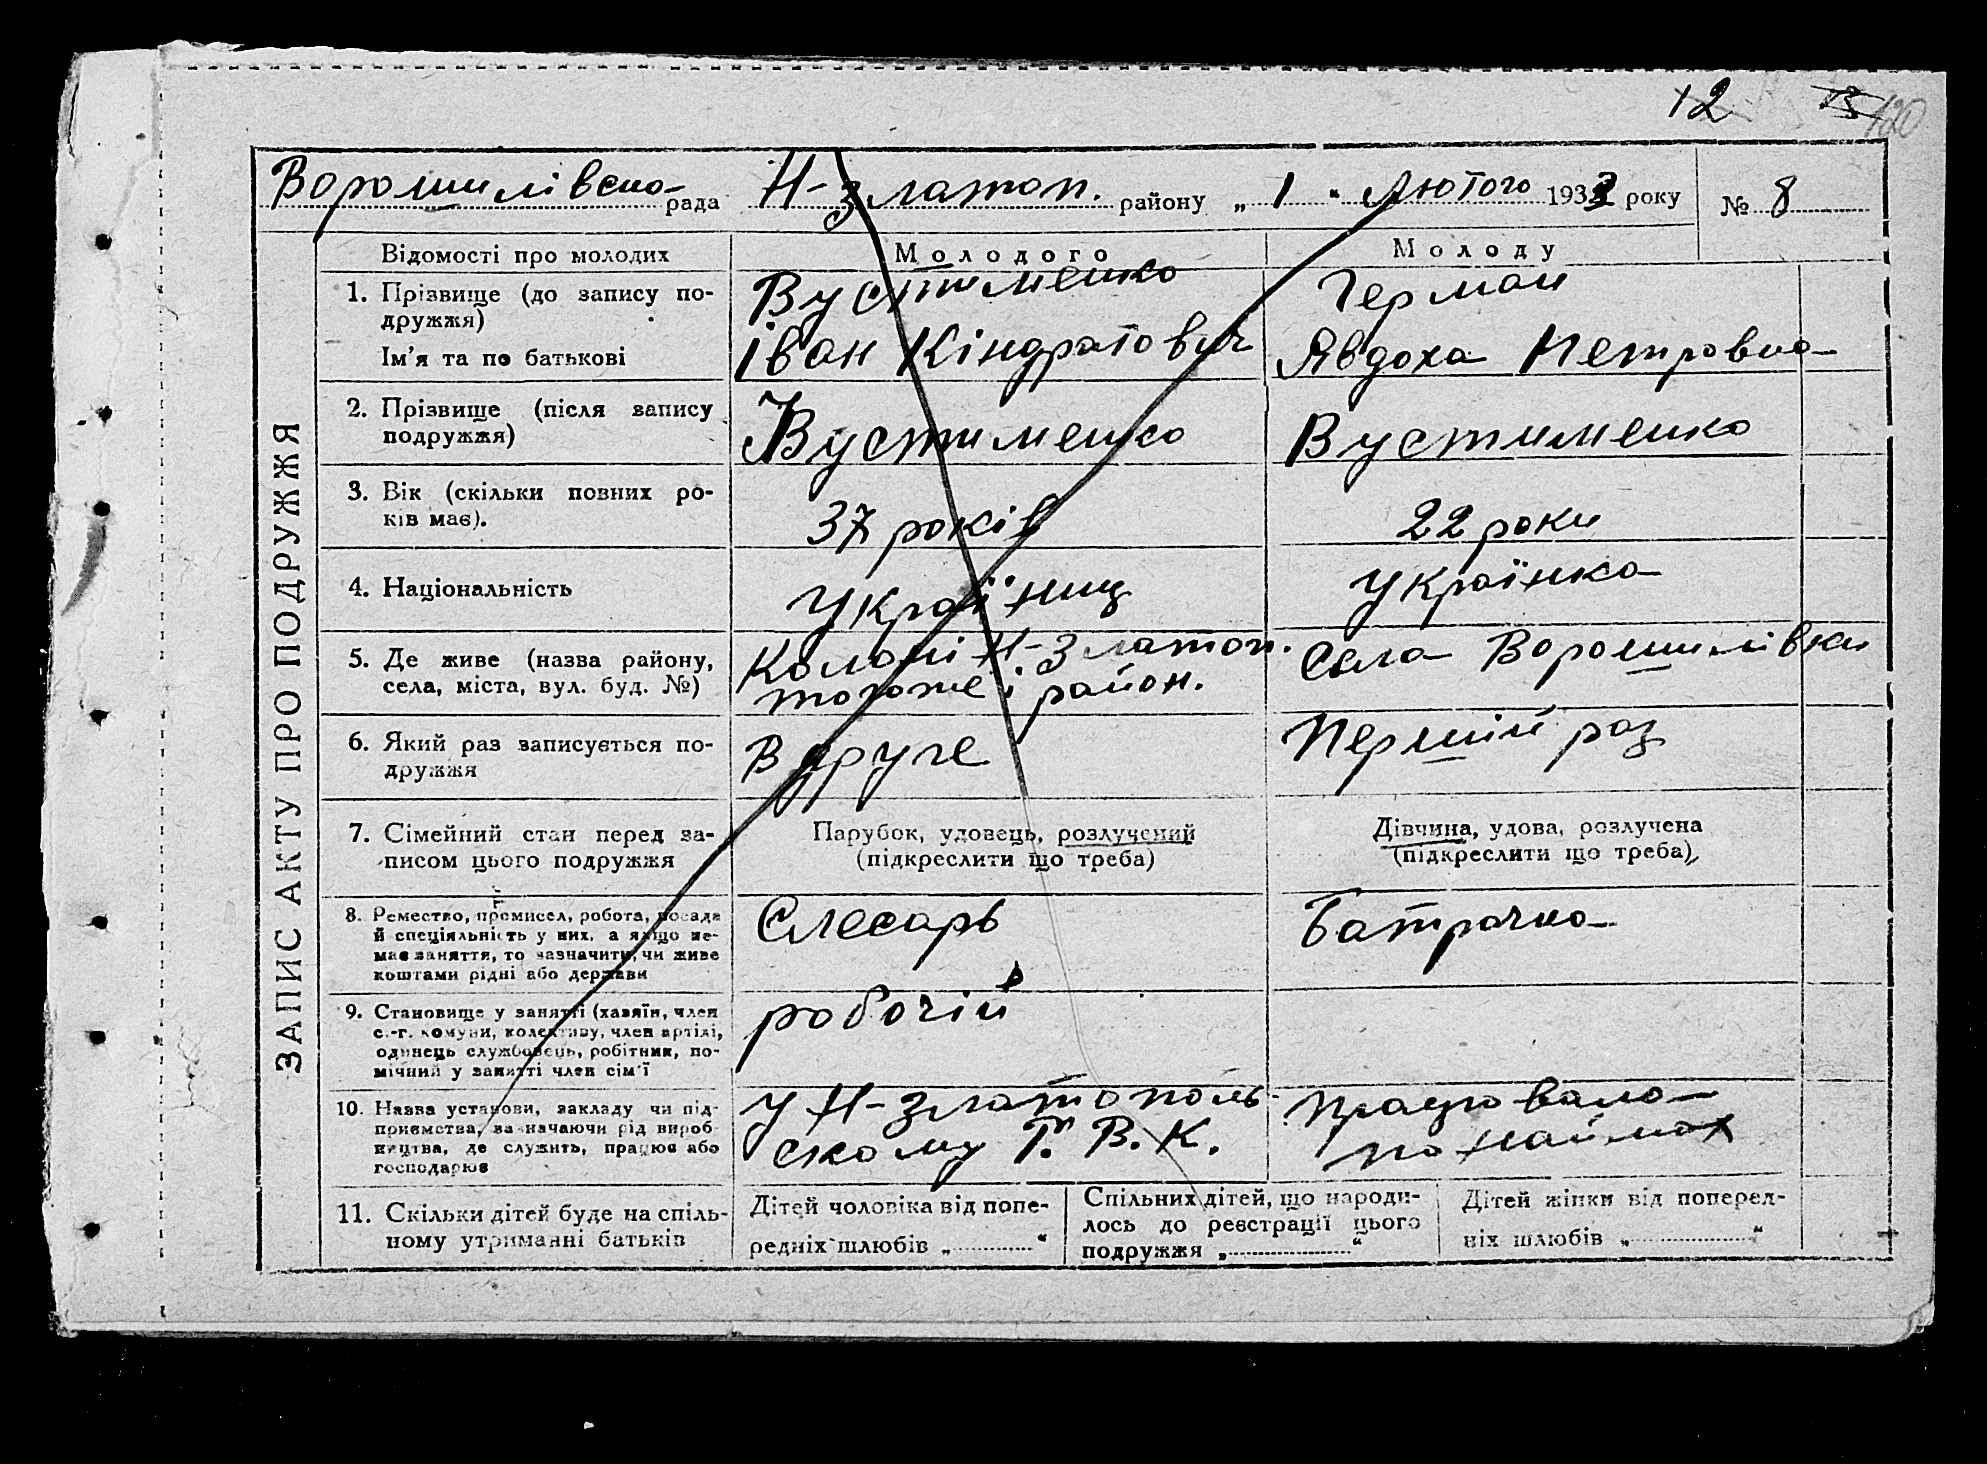 12 13 120
Ворошилівська рада Н-златоп. району „1“ Лютого 1933 року № 8
ЗАПИС АКТУ ПРО ПОДРУЖЖЯ
Відомості про молодих Молодого Молоду
1. Прізвище (до запису по-
дружжя)
Вустименко Герман
Ім'я та по батькові Іван Кіндратович Явдоха Петровна
2. Прізвище (після запису
подружжя)
Вустименко Вустименко
3. Вік (скільки повних ро-
ків має).
37 років 22 роки
4. Національність Україниц Українка
5. Де живе (назва району,
села, міста, вул. буд. №)
Колоні Н-Златоп.
тогоже і район.
Села Ворошилівки
6. Який раз записується по-
дружжя
Вдруге Перший раз
7. Сімейний стан перед за-
писом цього подружжя
Парубок, удовець, розлучений
(підкреслити що треба)
Дівчина, удова, розлучена
(підкреслити що треба)
8. Ремество, промисел, робота, посада
й спеціяльність у них, а якщо не-
має заняття, то зазначити, чи живе
коштами рідні або держави
Слесарь Батрачка
9. Становище у занятті (хазяїн, член
с.-г. комуни, колективу, член артілі,
одинець службовець, робітник, по-
мічний у занятті член сім'ї
робочій
10. Назва установи, закладу чи під-
приємства, зазначаючи рід вироб-
ництва, де служить, працює або
господарює
У Н-златополь-
скому Р. В. К.
працювала
по наймах
11. Скільки дітей буде на спіль-
ному утриманні батьків
Дітей чоловіка від попе-
редніх шлюбів „..........“
Спільних дітей, що народи-
лось до реєстрації цього
подружжя „..........“
Дітей жінки від поперед-
ніх шлюбів „..........“